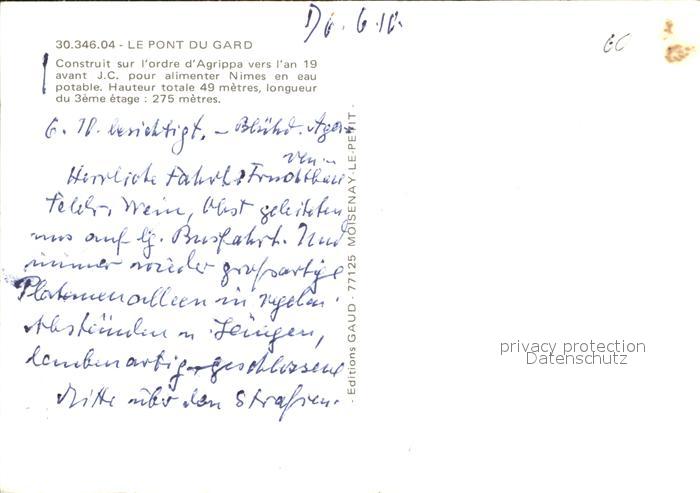 Di. 6.10.
GC
30.346.04 - LE PONT DU GARD
Construit sur l'ordre d'Agrippa vers l'an 19
avant J.C. pour alimenter Nimes en eau
potable. Hauteur totale 49 mètres, longueur
du 3ème étage : 275 mètres.
6. 10. besichtigt. – Blühd. Aga-
ven
Herrliche Fahrt: Fruchtbare
Felder, Wein, Obst geleiteten
uns auf lg. Busfahrt. Und
immer wieder großartige
Platanenalleen in regelm.
Abständen u. Längen,
laubenartig geschlossene
Mitte über den Straßen.
- Editions GAUD - 77125 MOISENAY-LE-PETIT -
privacy protection
Datenschutz